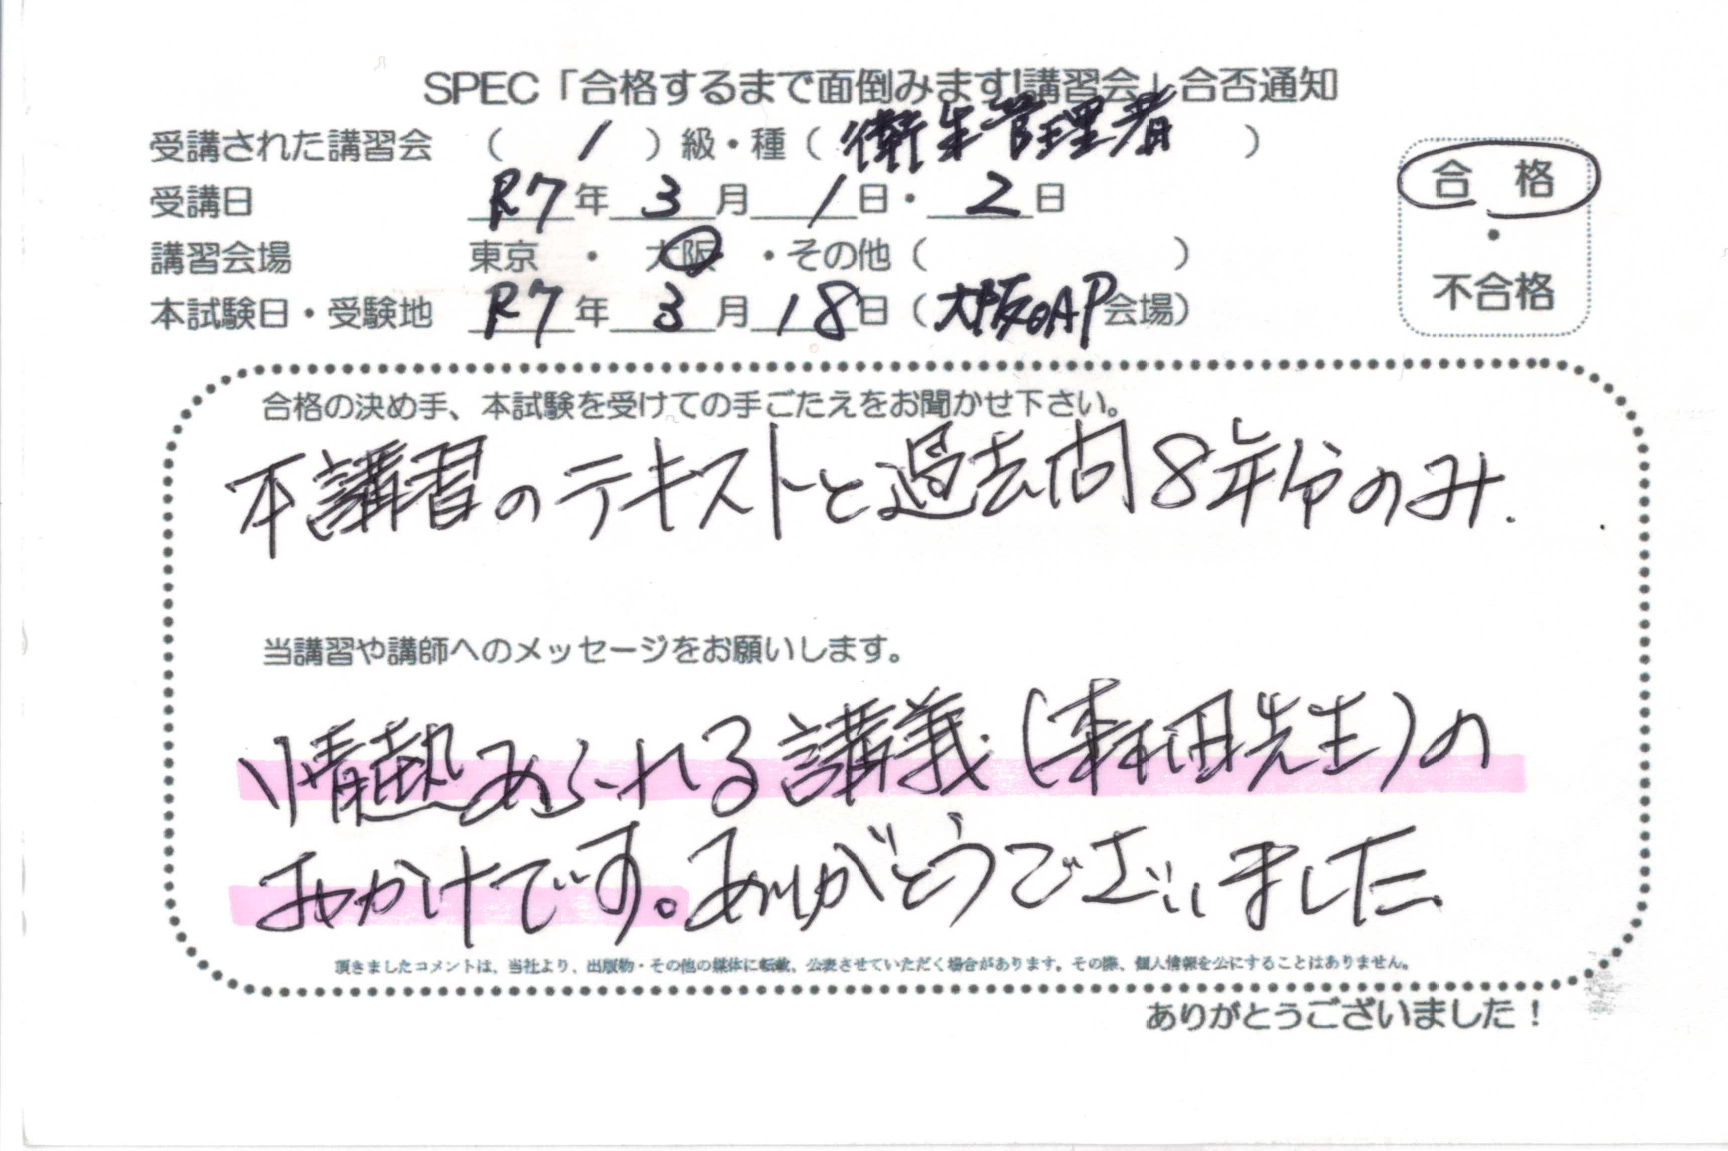 SPEC「合格するまで面倒みます!講習会」合否通知
受講された講習会 ( 1 ) 級・種 ( 衛生管理者 )
受講日 R7年 3月 1日・ 2日
講習会場 東京 ・ 大阪 ・その他 ( )
本試験日・受験地 R7年 3月 18日 (大阪OAP会場)
合 格
・
不合格
合格の決め手、本試験を受けての手ごたえをお聞かせ下さい。
本講習のテキストと過去問8年分のみ.
当講習や講師へのメッセージをお願いします。
情熱あふれる講義(森田先生)の
おかげです。ありがとうございました
頂きましたコメントは、当社より、出版物・その他の媒体に転載、公表させていただく場合があります。その際、個人情報を公にすることはありません。
ありがとうございました!